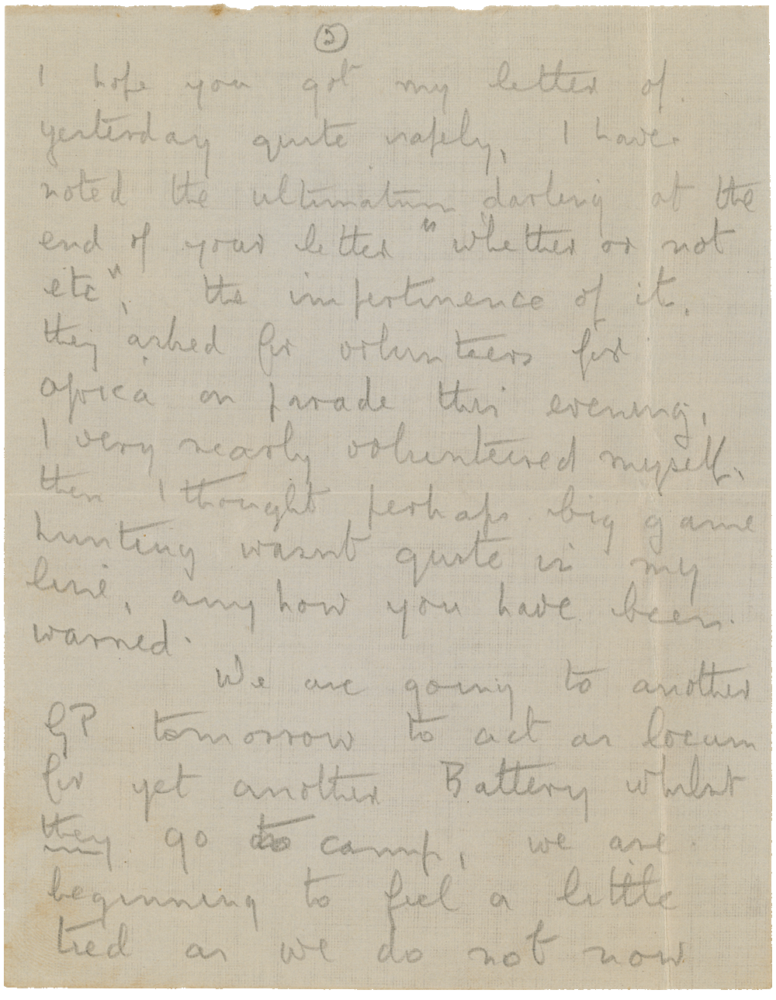 2
I hope you got my letter of
yesterday quite safely, I have
noted the ultimatum darling at the
end of your letter "whether or not
etc", the impertinence of it.
they asked for volunteers for
Africa on parade this evening,
I very nearly volunteered myself,
then I thought perhaps big game
hunting wasnt quite in my
line, anyhow you have been
warned.
We are going to another
GP tomorrow to act as locum
for yet another Battery whilst
they go to camp, we are
beginning to feel a little
tied as we do not now